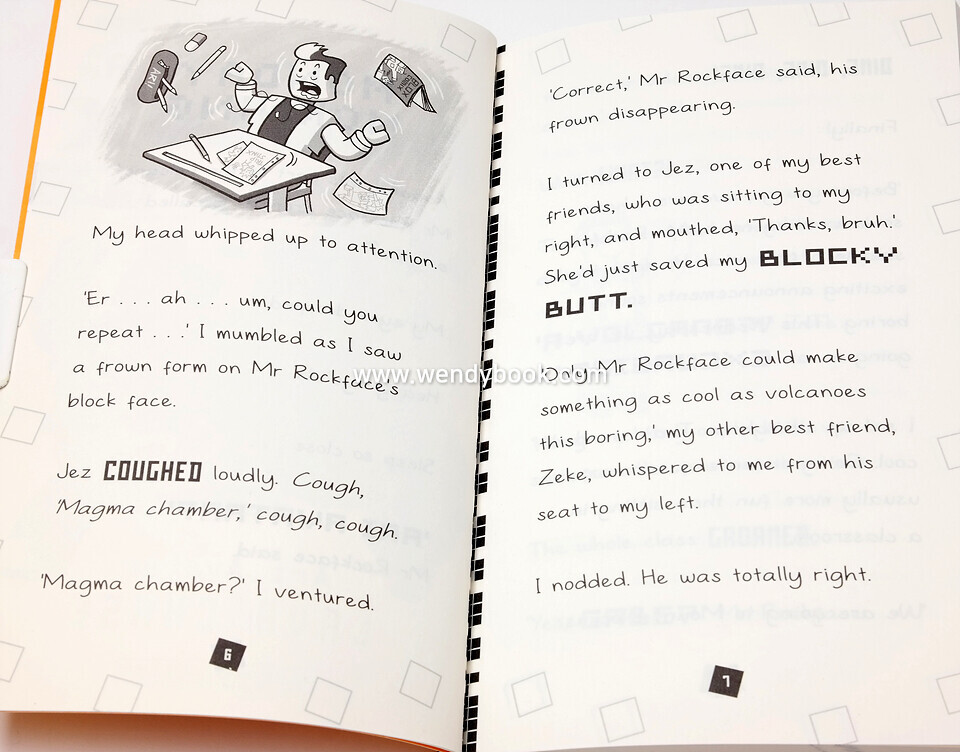 ART
My head whipped up to attention.
'Er . . . ah . . . um, could you
repeat . . .' I mumbled as I saw
a frown form on Mr Rockface's
block face.
Jez COUGHED loudly. Cough,
'Magma chamber,' cough, cough.
'Magma chamber?' I ventured.
6
'Correct,' Mr Rockface said, his
frown disappearing.
I turned to Jez, one of my best
friends, who was sitting to my
right, and mouthed, 'Thanks, bruh.'
She'd just saved my BLOCKY
BUTT.
'Only Mr Rockface could make
something as cool as volcanoes
this boring,' my other best friend,
Zeke, whispered to me from his
seat to my left.
I nodded. He was totally right.
7
www.wendybook.com